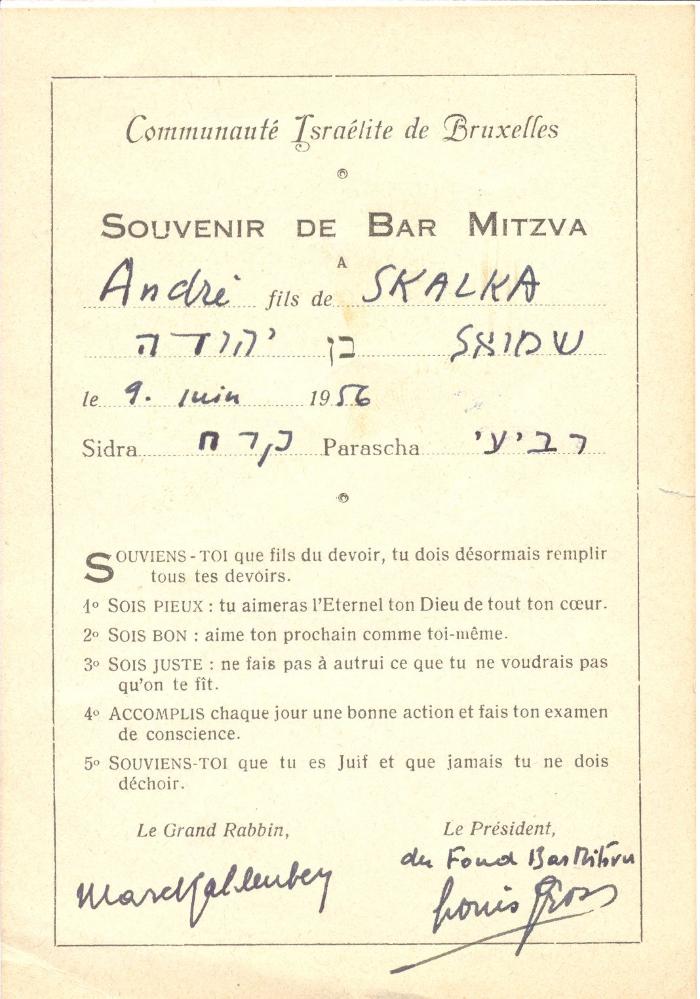 Communauté Israélite de Bruxelles
SOUVENIR DE BAR MITZVA
A
André fils de SKALKA
שמואל בן יהודה
le 9. juin 1956
Sidra קרח Parascha רביעי
SOUVIENS-TOI que fils du devoir, tu dois désormais remplir
tous tes devoirs.
1º SOIS PIEUX : tu aimeras l'Eternel ton Dieu de tout ton cœur.
2º SOIS BON : aime ton prochain comme toi-même.
3º SOIS JUSTE : ne fais pas à autrui ce que tu ne voudrais pas
qu'on te fît.
4º ACCOMPLIS chaque jour une bonne action et fais ton examen
de conscience.
5º SOUVIENS-TOI que tu es Juif et que jamais tu ne dois
déchoir.
Le Grand Rabbin,
Le Président,
du Fond Bar
Louis Gross